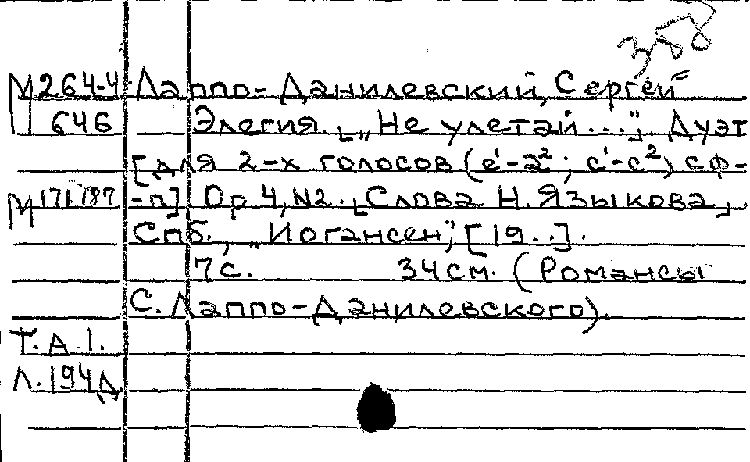 358
М264-4 Лаппо-Данилевский, Сергей
646 Элегия. [„Не улетай...“] Дуэт
[для 2-х голосов (e¹-a²; c¹-c²) с ф-
М171/787 -п] Op 4, N2. [Слова Н. Языкова]
Спб., „Иогансен“, [19..].
7с. 34см. (Романсы
С. Лаппо-Данилевского).
Т.А.1.
Л.194д